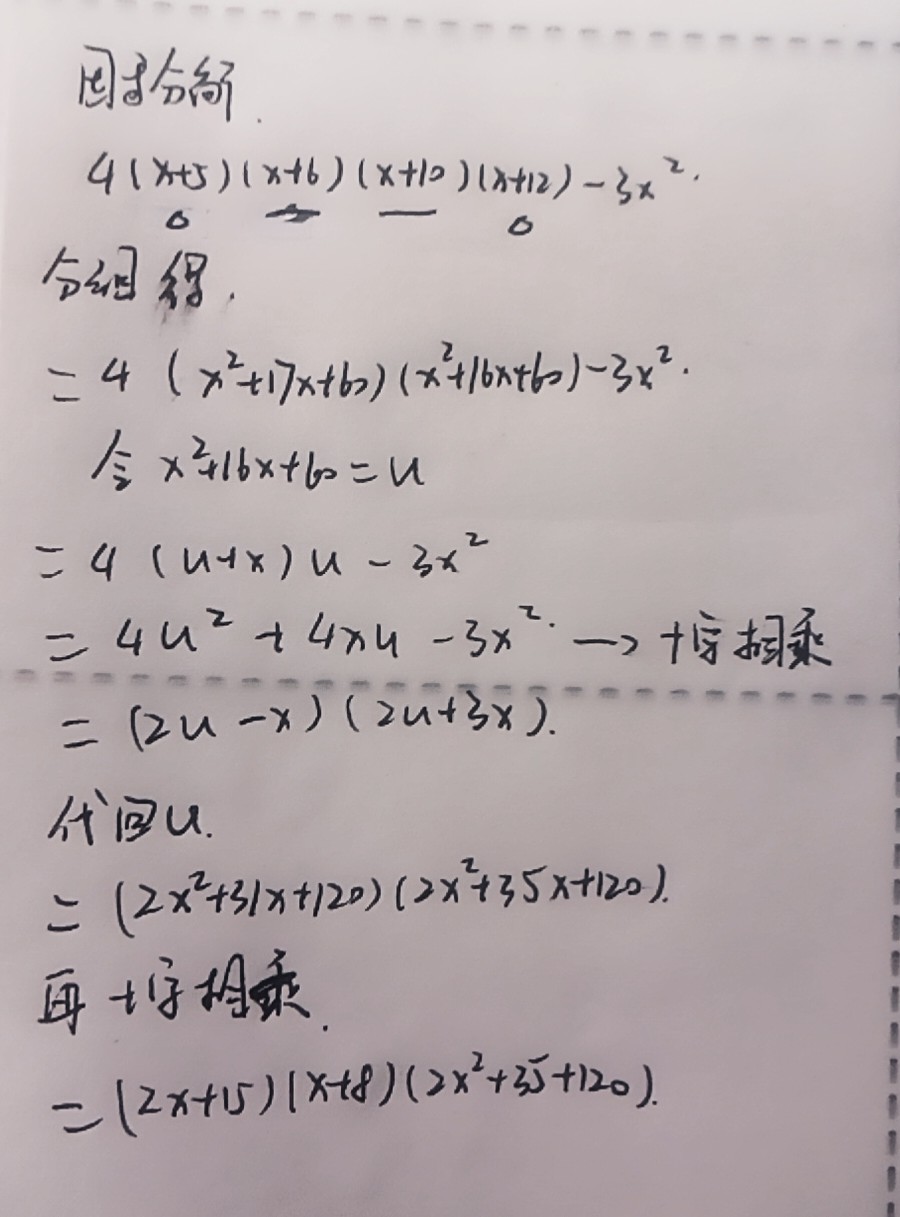 因式分解.
4(x+5)(x+6)(x+10)(x+12)-3x².
分组得.
=4(x²+17x+60)(x²+16x+60)-3x².
令x²+16x+60=u
=4(u+x)u-3x²
=4u²+4xu-3x². → 十字相乘
=(2u-x)(2u+3x).
代回u.
=(2x²+31x+120)(2x²+35x+120).
再十字相乘.
=(2x+15)(x+8)(2x²+35+120).